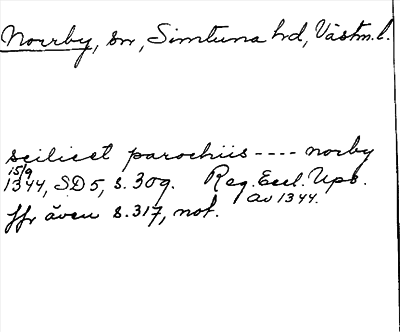 Norrby, sn, Simtuna hd, Västm. l.
scilicet parochiis ---- norby
15/9
1344, SD 5, s. 309. Reg. Eccl. Ups.
av 1344.
Jfr även s. 317, not.